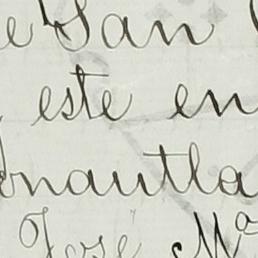 e San
este en
onautla
José Mª